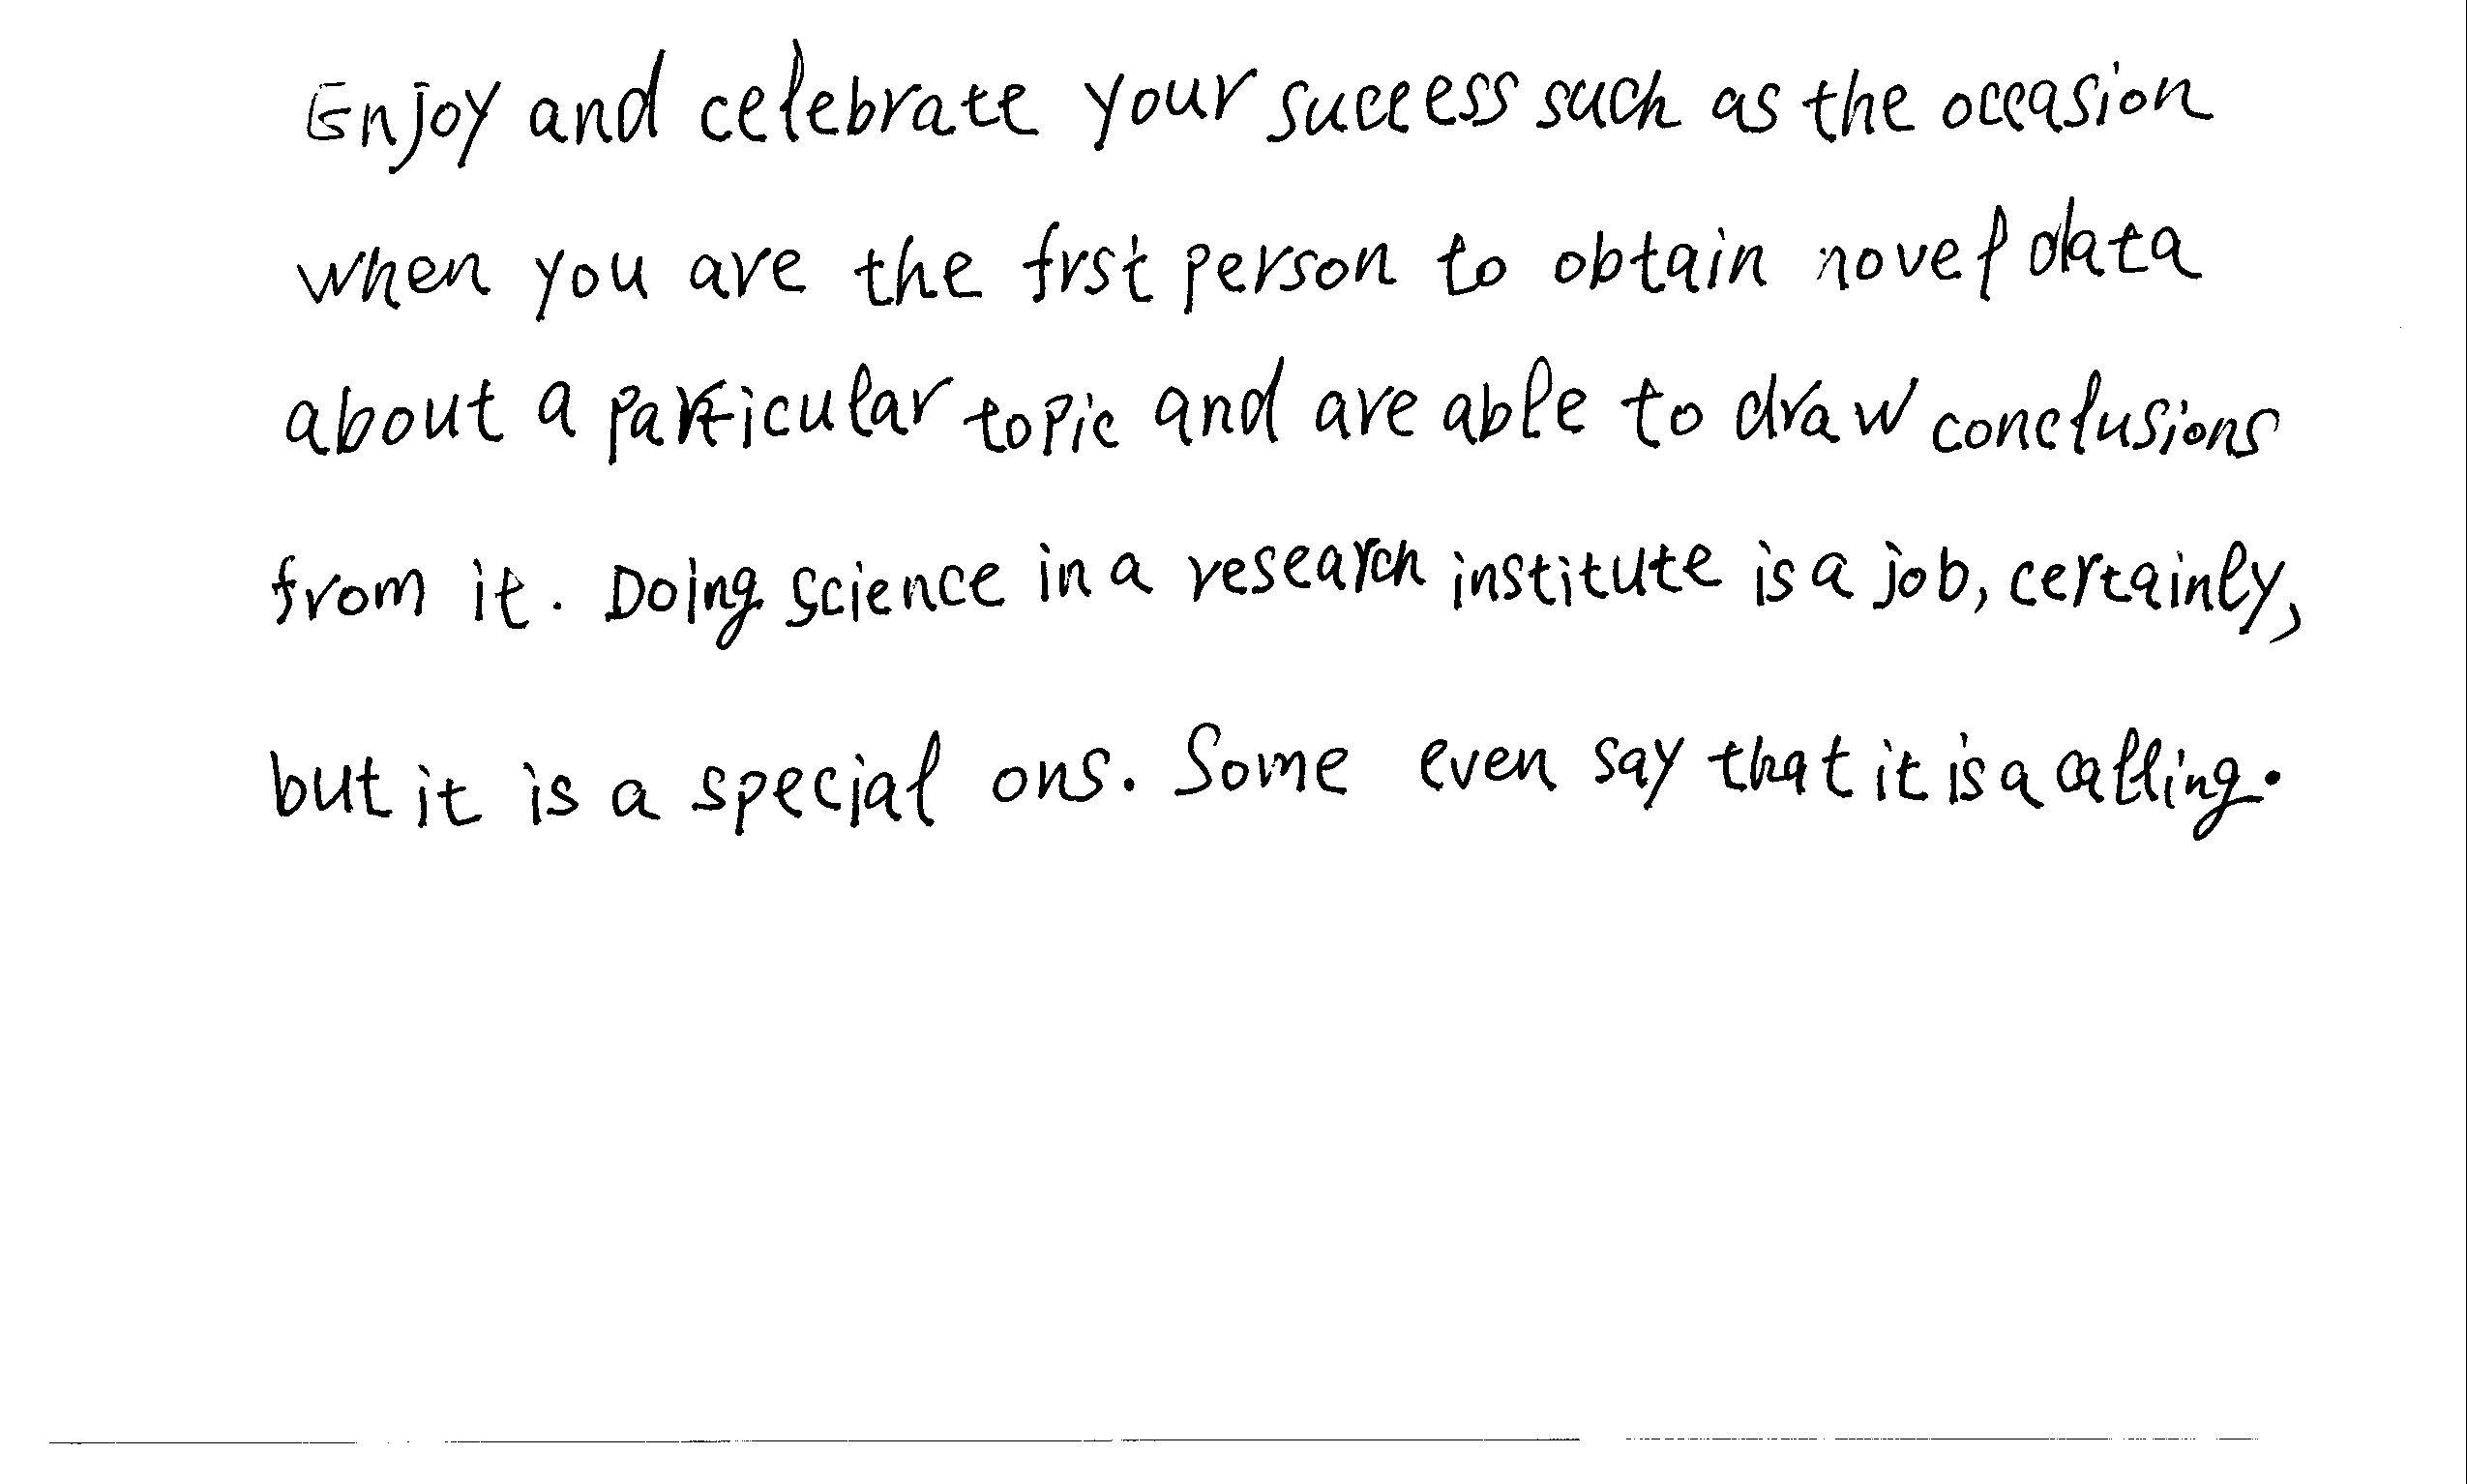 Enjoy and celebrate your success such as the occasion
when you are the frst person to obtain novel data
about a particular topic and are able to draw conclusions
from it. Doing science in a research institute is a job, certainly,
but it is a special ons. Some even say that it is a calling.